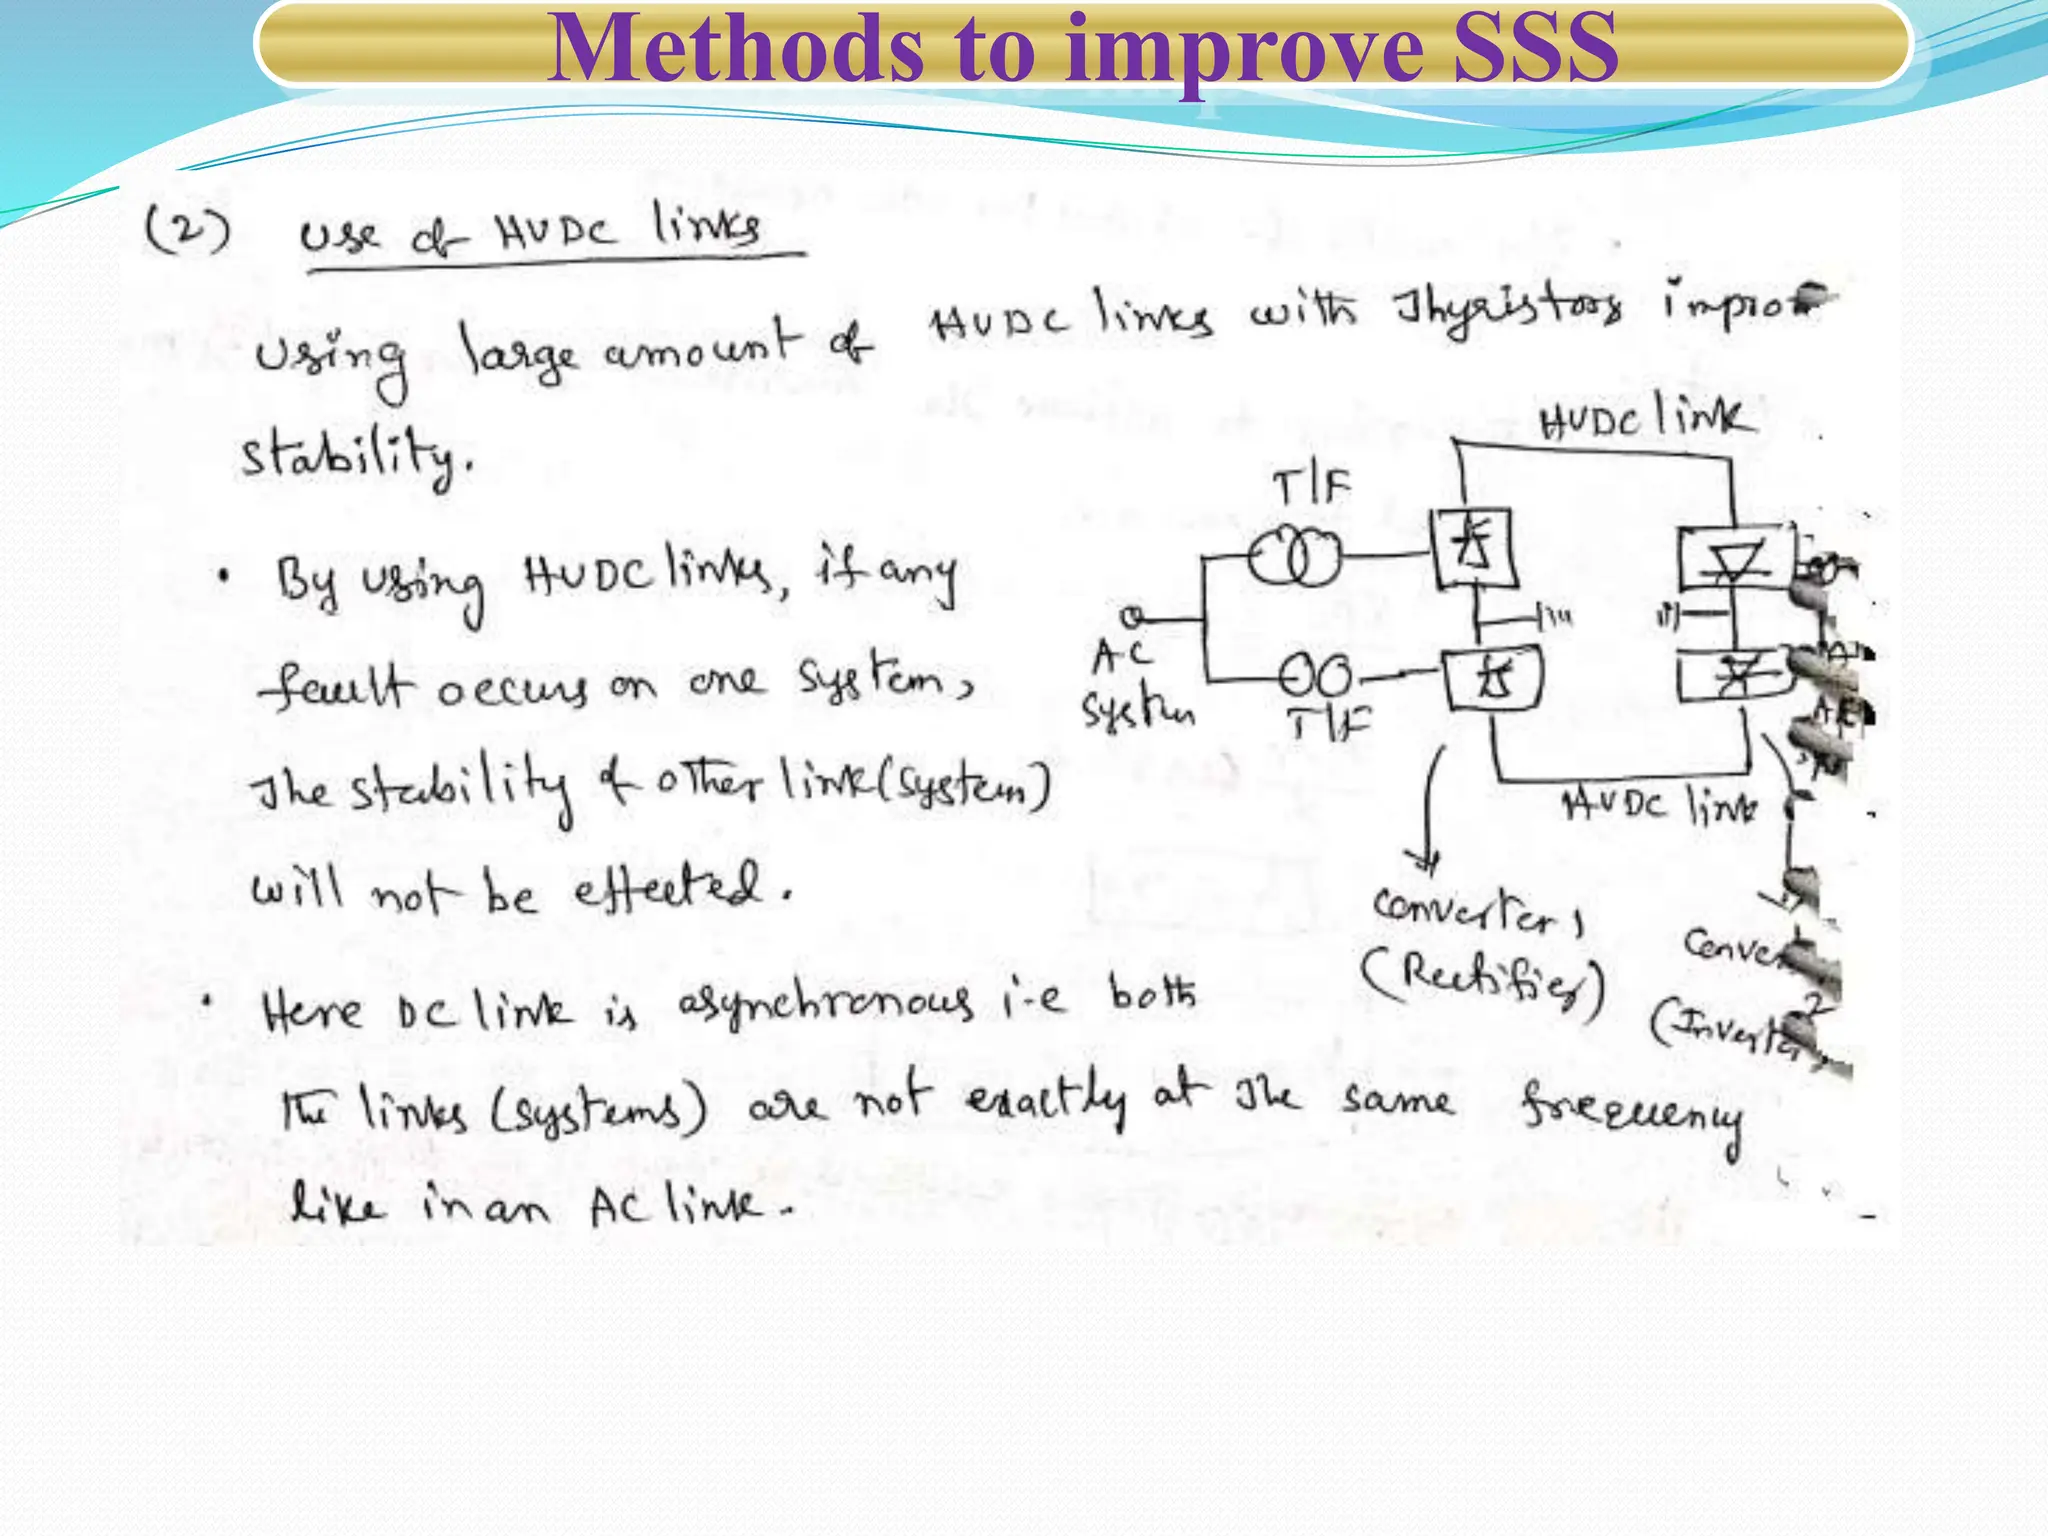 Methods to improve SSS
(2) Use of HVDC links
Using large amount of HVDC links with Thyristors
stability.
HVDC link
T/F
• By using HVDC links, if any
fault occurs on one system,
AC
system
T/F
The stability of other link (system)
HVDC link
will not be effected.
converter 1
(Rectifier)
2
• Here DC link is asynchronous i.e both
the links (systems) are not exactly at the same frequency
like in an AC link.